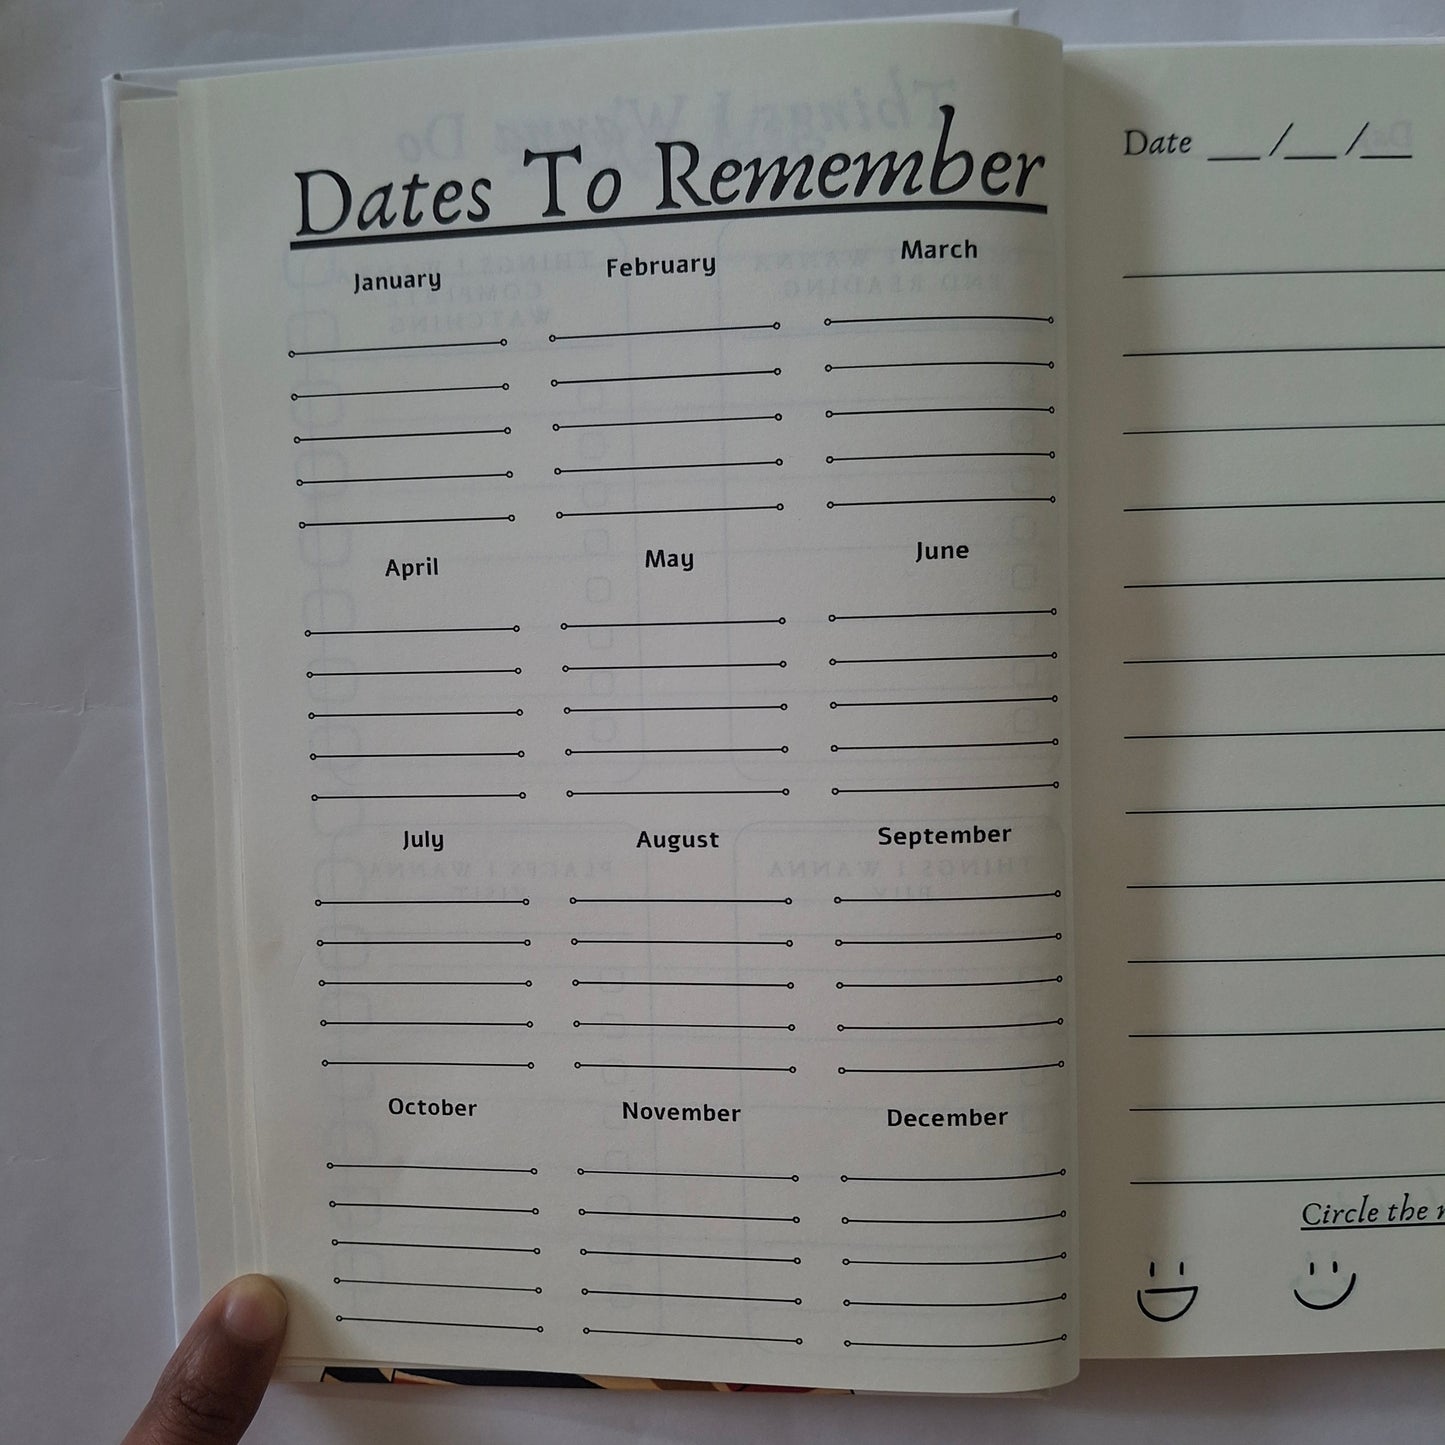 Dates To Remember
January February March
April May June
July August September
October November December
Date __/__/__
Circle the